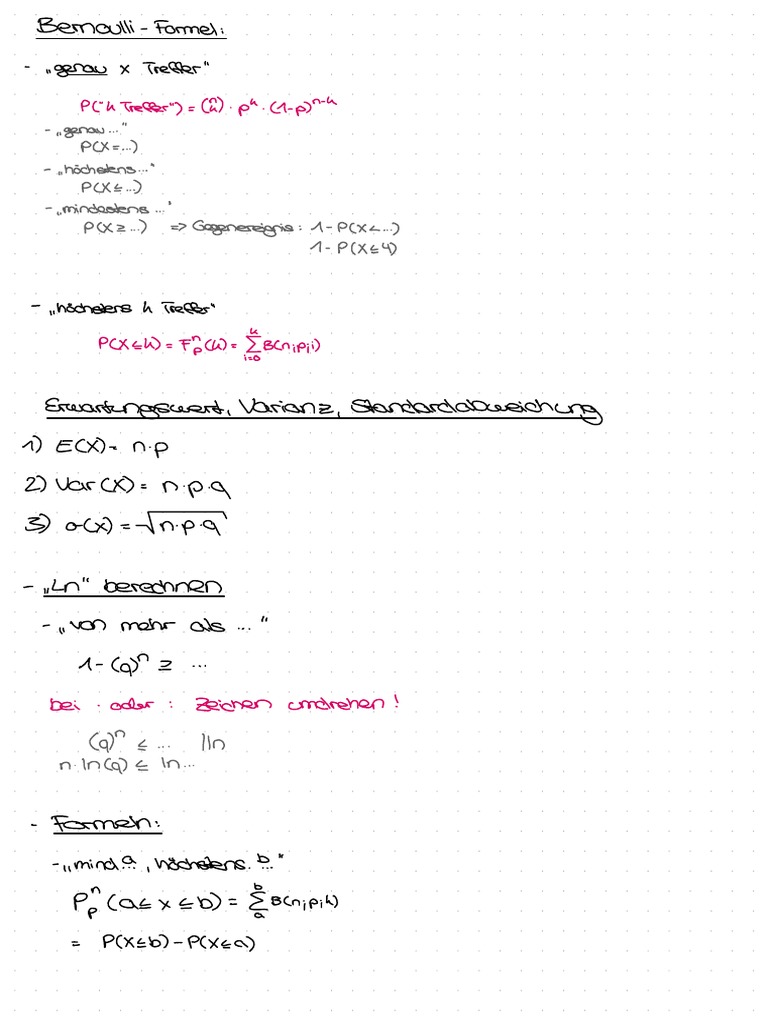 Bernoulli - Formel:
- „genau x Treffer"
P("k Treffer") = (n k) · p^k · (1-p)^(n-k)
- „genau ..."
P(X = ...)
- „höchstens ..."
P(X ≤ ...)
- „mindestens ..."
P(X ≥ ...) => Gegenereignis: 1 - P(X < ...)
1 - P(X ≤ 4)
- „höchstens k Treffer"
P(X ≤ k) = F^n_p (k) = ∑^k_{i=0} B(n;p;i)
Erwartungswert, Varianz, Standardabweichung
1) E(X) = n·p
2) Var(X) = n·p·q
3) σ(X) = √n·p·q
- „Ln" berechnen
- „von mehr als ..."
1 - (q)^n ≥ ...
bei · oder : Zeichen umdrehen!
(q)^n ≤ ... |ln
n · ln(q) ≤ ln...
- Formeln:
- „mind. a ..., höchstens b ..."
P^n_p (a ≤ x ≤ b) = ∑^b_a B(n;p;k)
= P(X ≤ b) - P(X ≤ a)